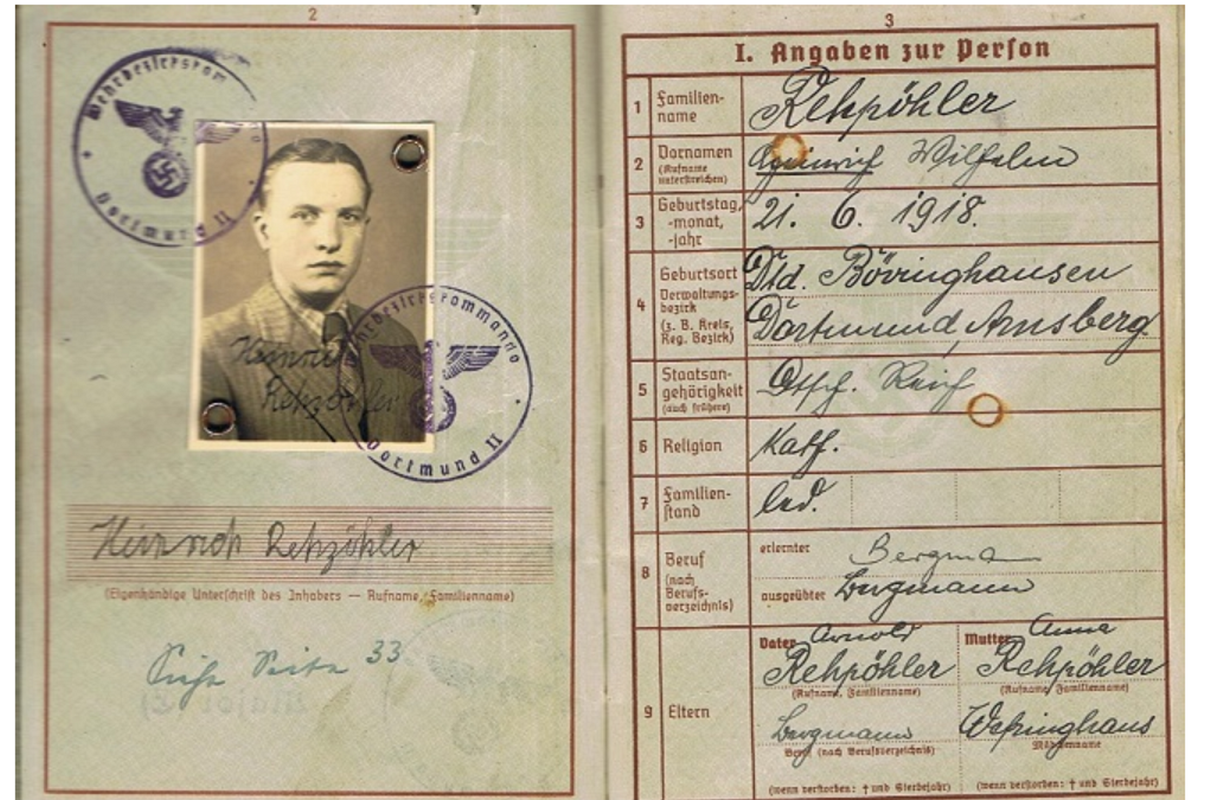 2
Wehrbezirkskom
Dortmund II
Wehrbezirkskommando
Dortmund II
Heinrich
Rehpöhler
Heinrich Rehpöhler
(Eigenhändige Unterschrift des Inhabers — Rufname, Familienname)
Siehe Seite 33
3
I. Angaben zur Person
1 Familien-
name
Rehpöhler
2 Vornamen
(Rufname
unterstreichen)
Heinrich Wilhelm
3 Geburtstag,
-monat,
-jahr
21. 6. 1918.
4 Geburtsort
Verwaltungs-
bezirk
(z. B. Kreis,
Reg. Bezirk)
Dtd. Bövinghausen
Dortmund, Arnsberg
5 Staatsan-
gehörigkeit
(auch frühere)
Dtsch. Reich
6 Religion
Kath.
7 Familien-
stand
led.
8 Beruf
(nach
Berufs-
verzeichnis)
erlernter Bergma
ausgeübter Bergmann
9 Eltern
Vater Arnold
Rehpöhler
(Rufname, Familienname)
Bergmann
Beruf (nach Berufsverzeichnis)
(wenn verstorben: † und Sterbejahr)
Mutter Anna
Rehpöhler
(Rufname, Familienname)
Mädchenname
(wenn verstorben: † und Sterbejahr)